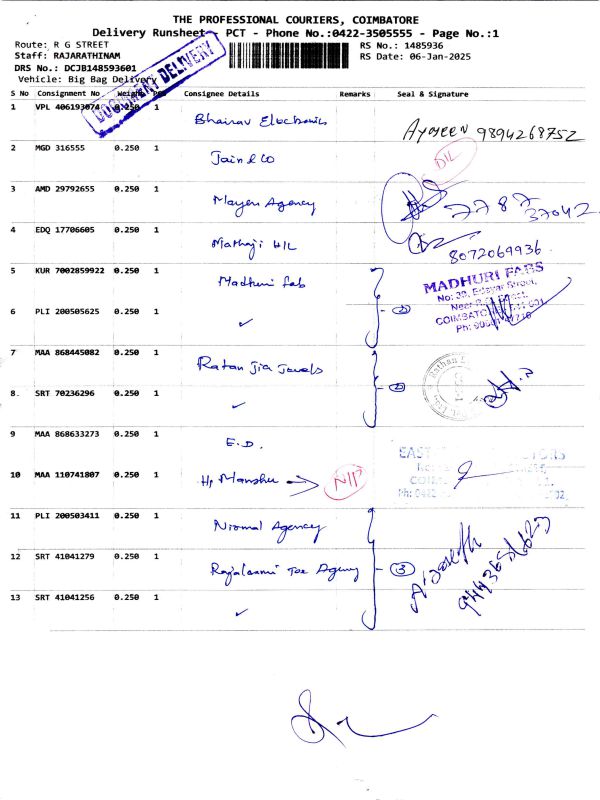 THE PROFESSIONAL COURIERS, COIMBATORE
Delivery Runsheet - PCT - Phone No.:0422-3505555 - Page No.:1
Route: R G STREET
RS No.: 1485936
Staff: RAJARATHINAM
RS Date: 06-Jan-2025
DRS No.: DCJB148593601
Vehicle: Big Bag Delivery
DOCUMENT DELIVERY
S No Consignment No Weight PCS Consignee Details Remarks Seal & Signature
1 VPL 406193074 0.250 1 Bhairav Electronics 9894268752
2 MGD 316555 0.250 1 Jain & Co D/L
3 AMD 29792655 0.250 1 Mayen Agency 7787 37042
4 EDQ 17706605 0.250 1 Mathaji H/L 8072069936
5 KUR 7002859922 0.250 1 Madhuri fab
MADHURI FABS
No: 39, Edayar Street,
6 PLI 200505625 0.250 1 ✓ 2
7 MAA 868445082 0.250 1 Ratan Jia Jewels
8. SRT 70236296 0.250 1 ✓ 2
9 MAA 868633273 0.250 1 E.D.
10 MAA 110741807 0.250 1 Hp Manshu → N/P
11 PLI 200503411 0.250 1 Nirmal Agency
12 SRT 41041279 0.250 1 Rajalaxmi Tex Agency 3
13 SRT 41041256 0.250 1 ✓